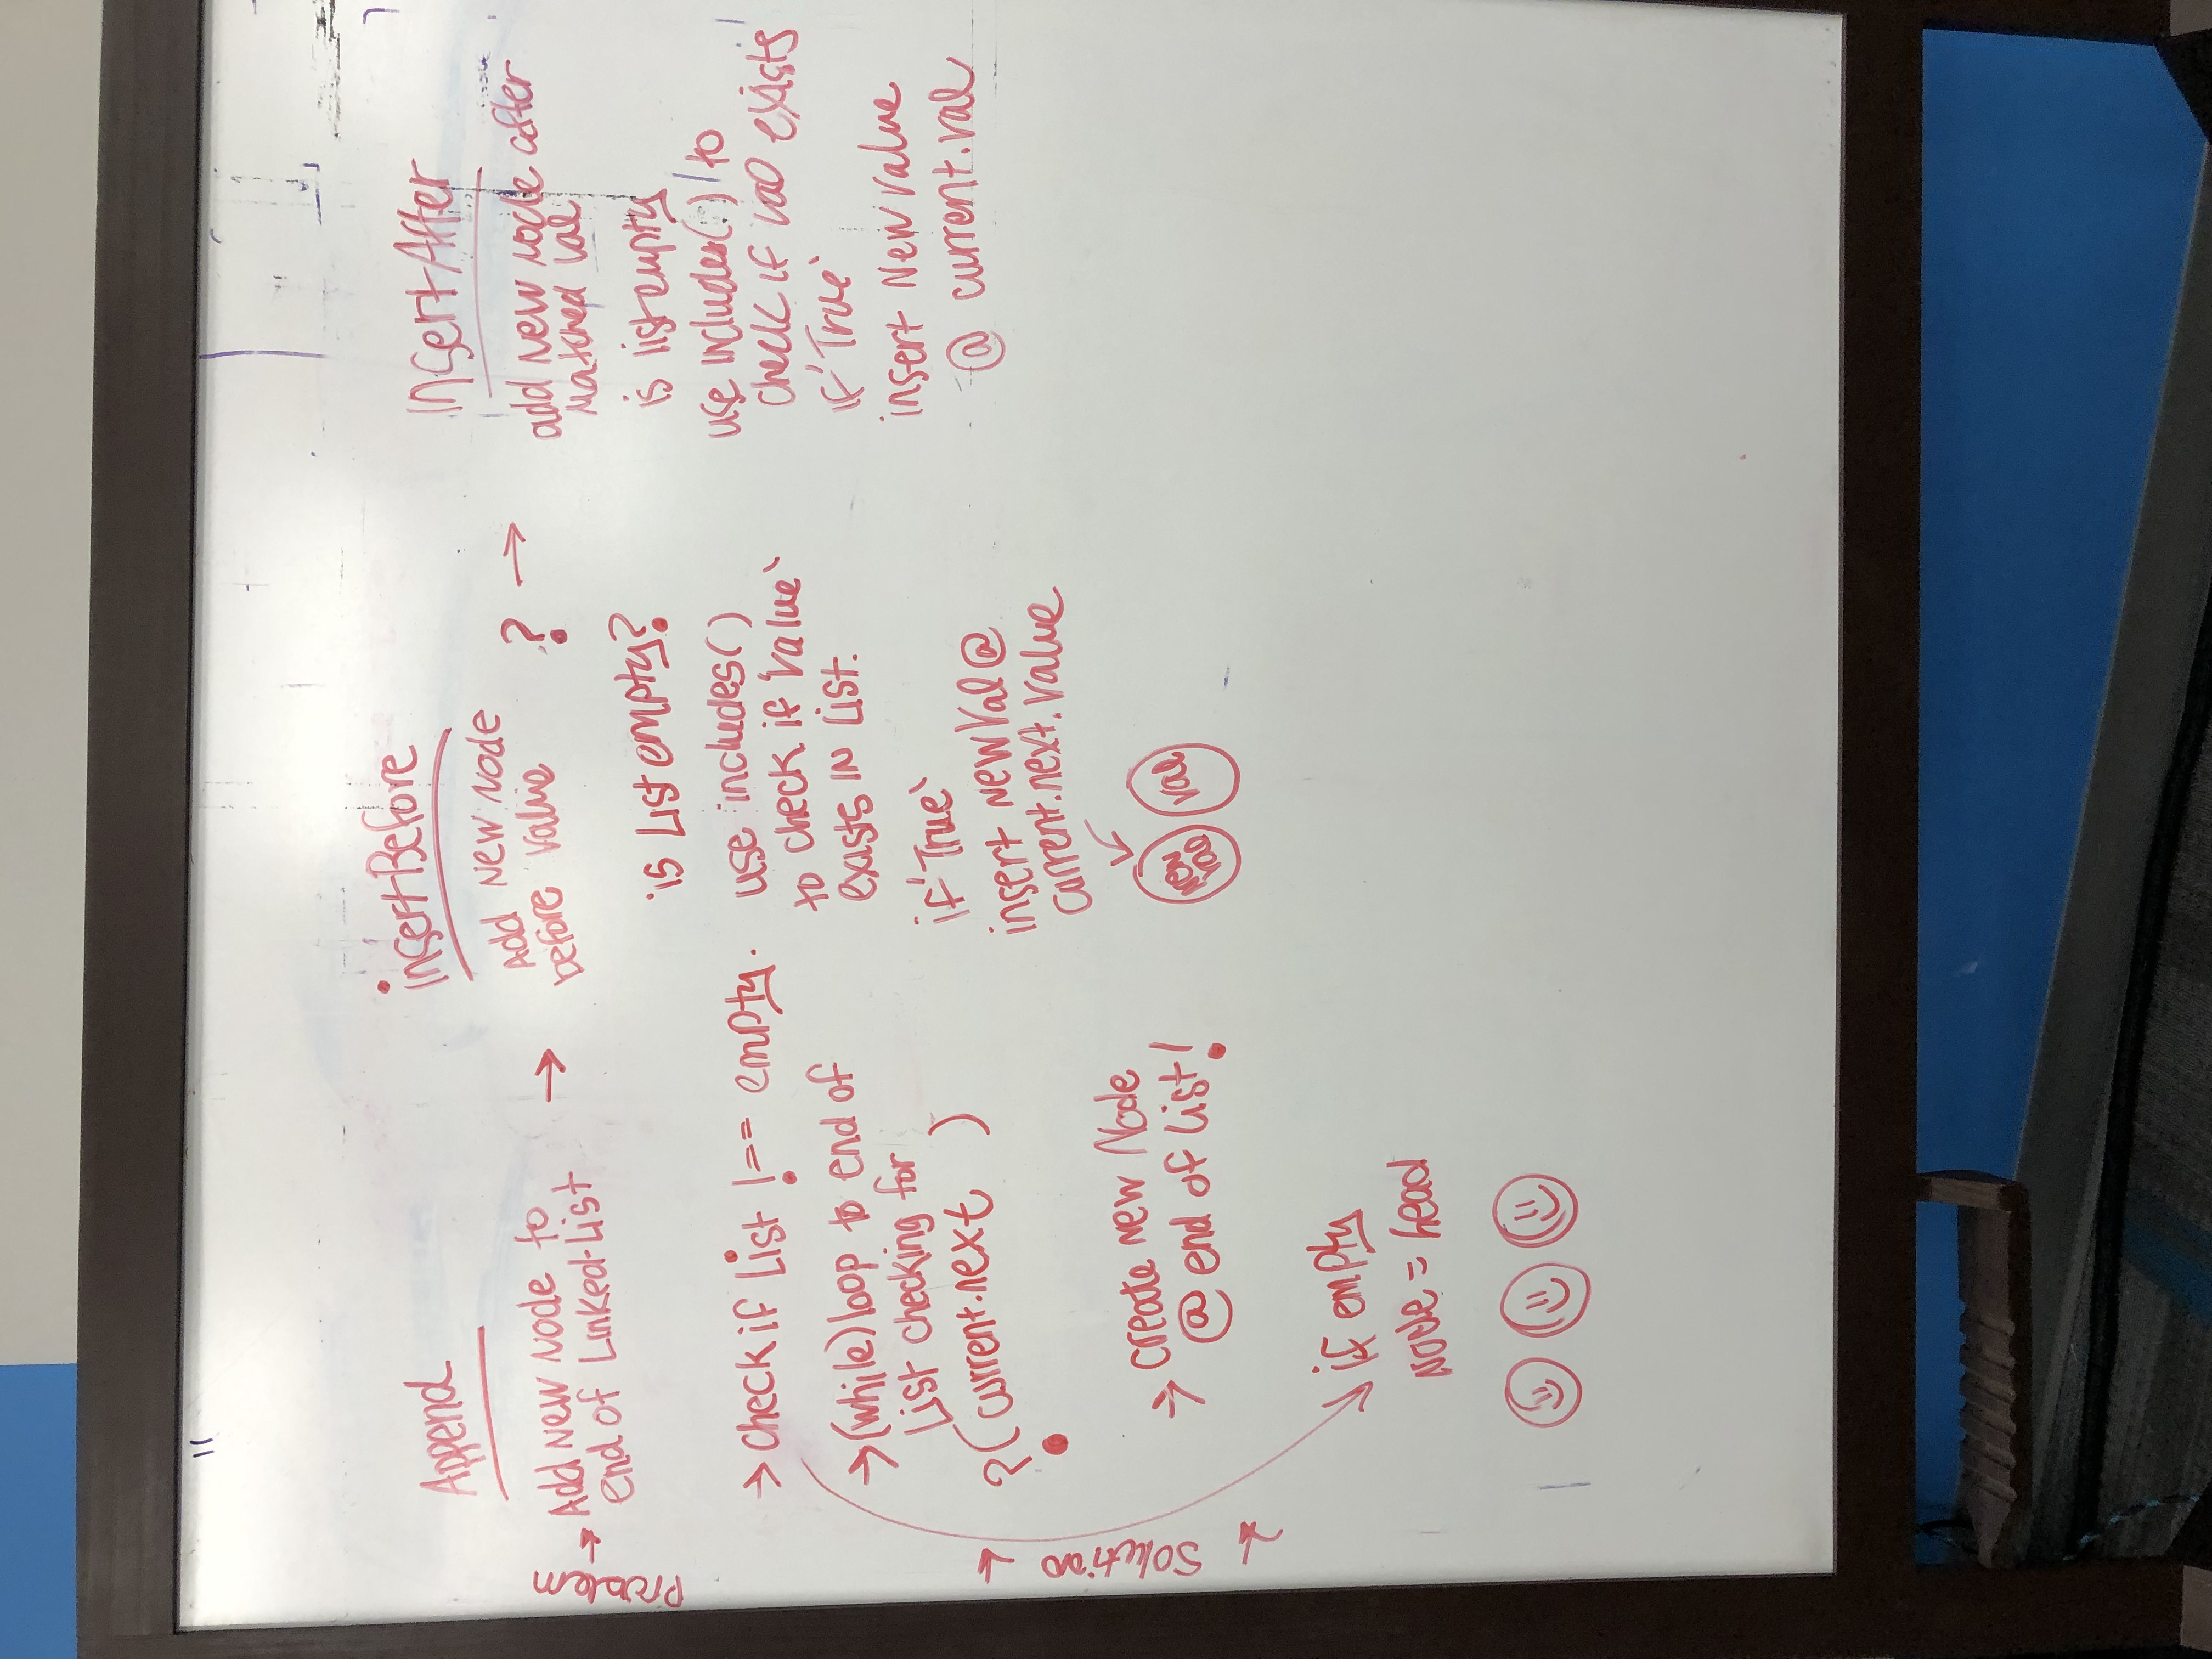 Append
Problem
→ Add New Node to
end of Linked-List
→ check if List !== empty.
→ (while) loop to end of
List checking for
?(current.next )
Solution →
→ create new Node
@ end of list!
if empty
Node = head
→
insertBefore
Add New Node
before value
?
is List empty?
use includes()
to check if 'value`
exists in List.
if 'True`
insert newVal @
current.next.value
new
val
val
→
InsertAfter
add new node after
matched val
is list empty
use includes() to
check if val exists
if 'True`
insert New value
@ current.val